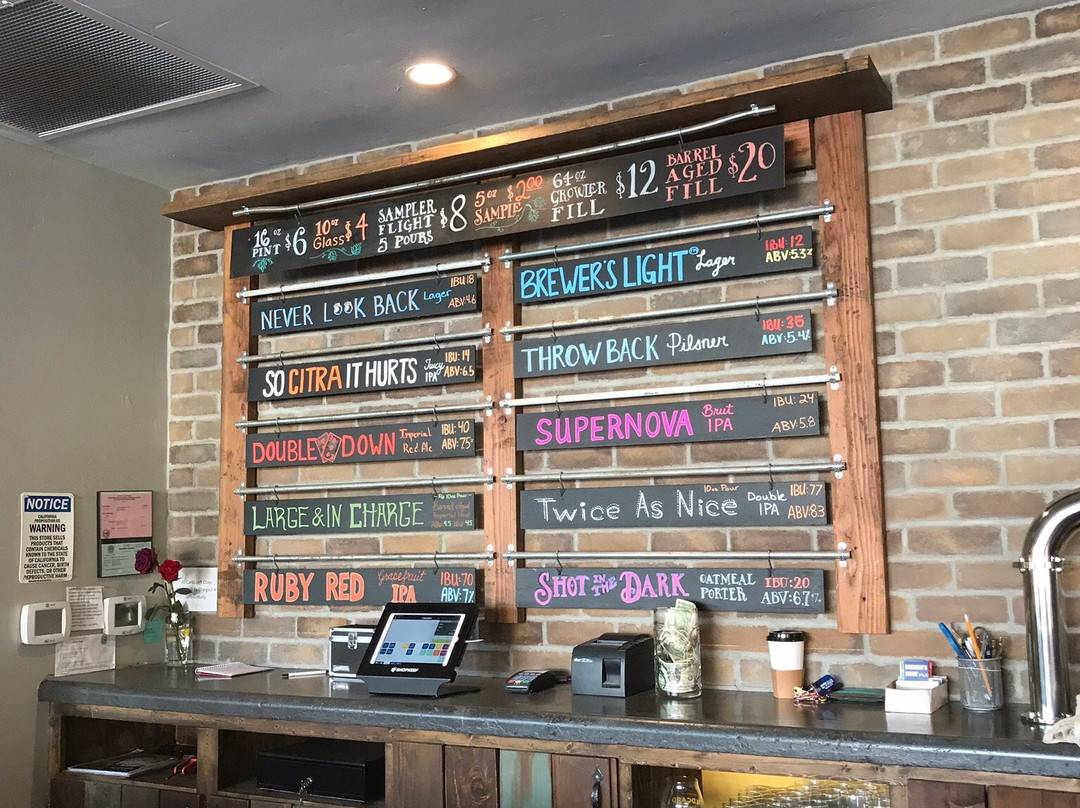 16 oz PINT $6
10oz Glass $4
SAMPLER FLIGHT 5 POURS $8
5oz SAMPLE $2.00
64oz GROWLER FILL $12
BARREL AGED FILL $20
NEVER LOOK BACK Lager IBU:18 ABV:4.6
SO CITRA IT HURTS Juicy IPA IBU:14 ABV:6.5
DOUBLE DOWN Imperial Red Ale IBU:40 ABV:7.5
LARGE & IN CHARGE
RUBY RED Grapefruit IPA IBU:70 ABV:7.2
BREWER'S LIGHT Lager IBU:12 ABV:5.3%
THROW BACK Pilsner IBU:35 ABV:5.4%
SUPERNOVA Brut IPA IBU:24 ABV:5.8
TWICE AS NICE 10oz Pour Double IPA IBU:77 ABV:8.3
SHOT IN THE DARK OATMEAL PORTER IBU:20 ABV:6.7%
NOTICE
CALIFORNIA
PROPOSITION 65
WARNING
THIS STORE SELLS
PRODUCTS THAT
CONTAIN CHEMICALS
KNOWN TO THE STATE
OF CALIFORNIA TO
CAUSE CANCER, BIRTH
DEFECTS AND OTHER
REPRODUCTIVE HARM
SHOPKEEP